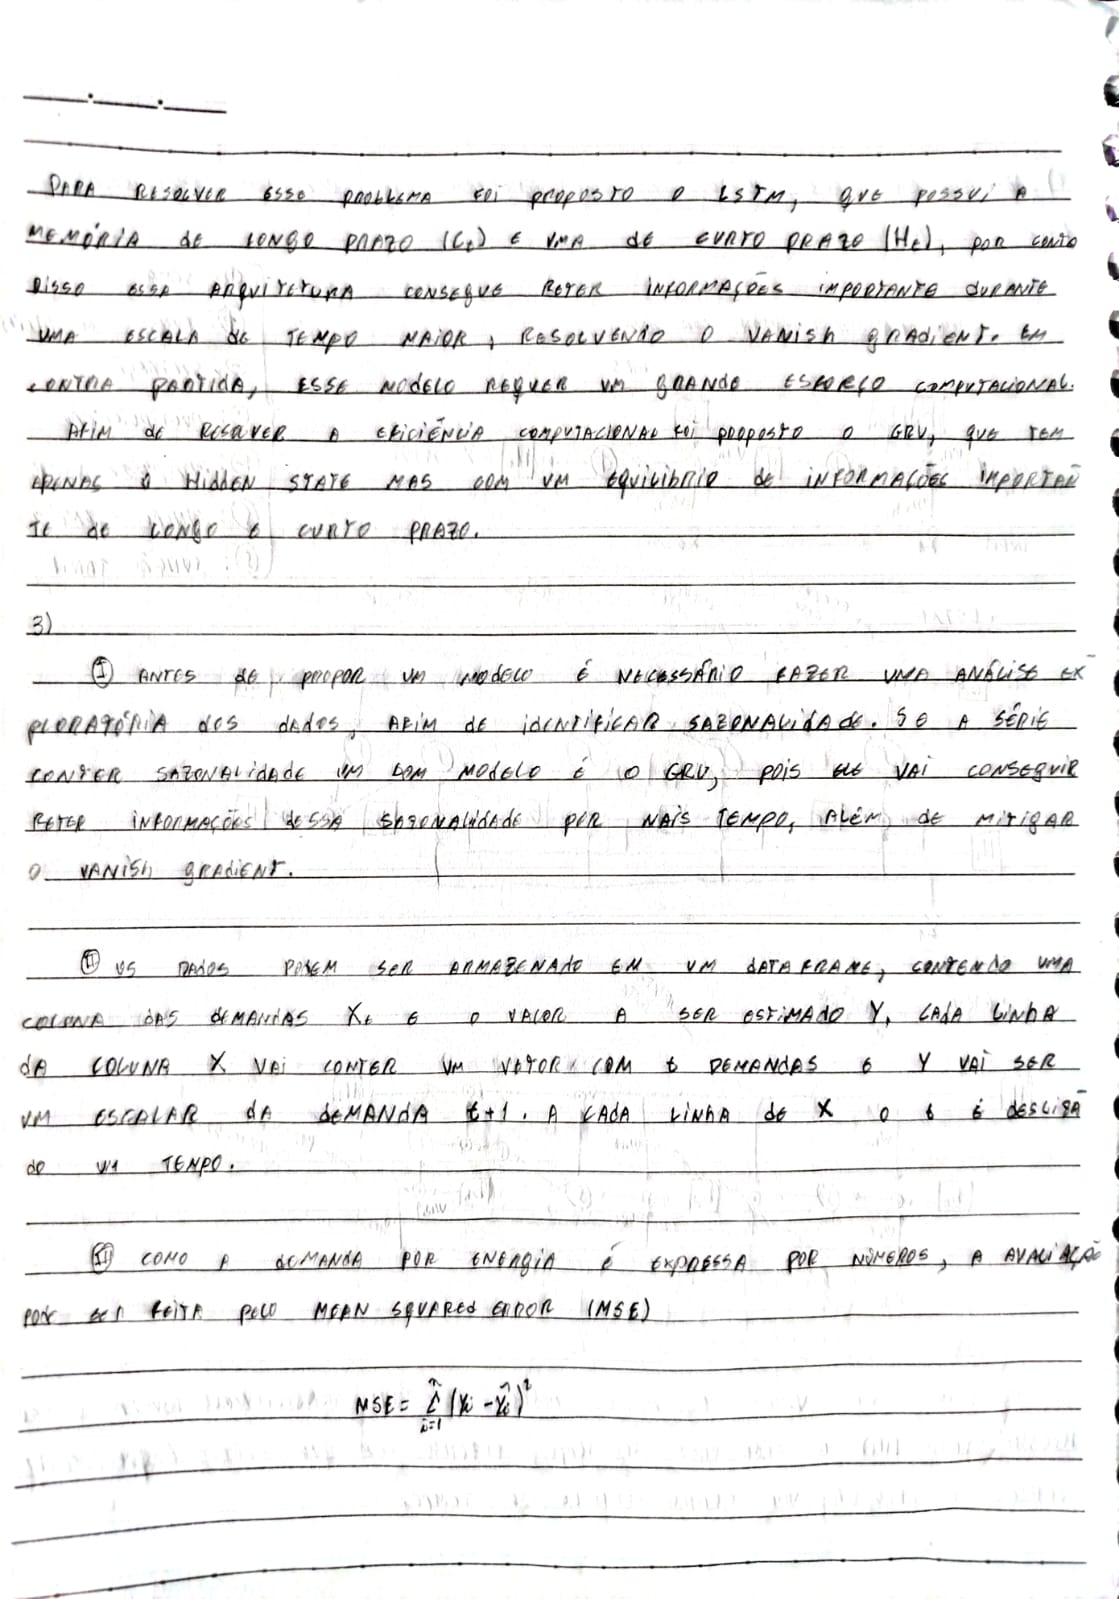 PARA RESOLVER ESSE PROBLEMA FOI PROPOSTO O LSTM, QUE POSSUI A
MEMÓRIA DE LONGO PRAZO (Ct) E UMA DE CURTO PRAZO (Ht), POR CONTA
DISSO ESSA ARQUITETURA CONSEGUE RETER INFORMAÇÕES IMPORTANTE DURANTE
UMA ESCALA DE TEMPO MAIOR, RESOLVENDO O VANISH GRADIENT. EM
CONTRA PARTIDA, ESSE MODELO REQUER UM GRANDE ESFORÇO COMPUTACIONAL.
AFIM DE RESOLVER A EFICIÊNCIA COMPUTACIONAL FOI PROPOSTO O GRU, QUE TEM
APENAS O HIDDEN STATE MAS COM UM EQUILIBRIO DE INFORMAÇÕES IMPORTAN
TE DE LONGO E CURTO PRAZO.
3)
(I) ANTES DE PROPOR UM MODELO É NECESSÁRIO FAZER UMA ANÁLISE EX-
PLORATÓRIA DOS DADOS, AFIM DE IDENTIFICAR SAZONALIDADE. SE A SÉRIE
CONTER SAZONALIDADE UM BOM MODELO É O GRU, POIS ELE VAI CONSEGUIR
RETER INFORMAÇÕES DESSA SAZONALIDADE POR MAIS TEMPO, ALÉM DE MITIGAR
O VANISH GRADIENT.
(II) OS DADOS PODEM SER ARMAZENADO EM UM DATAFRAME, CONTENDO UMA
COLUNA DAS DEMANDAS Xt E O VALOR A SER ESTIMADO Y, CADA LINHA
DA COLUNA X VAI CONTER UM VETOR COM t DEMANDAS E Y VAI SER
UM ESCALAR DA DEMANDA t+1. A CADA LINHA DE X O t É DESLIZA
DO UM TEMPO.
(III) COMO A DEMANDA POR ENERGIA É EXPRESSA POR NÚMEROS, A AVALIAÇÃO
PODE SER FEITA PELO MEAN SQUARED ERROR (MSE)
MSE = Σ_{i=1}^{n} (Yi - Ŷi)²